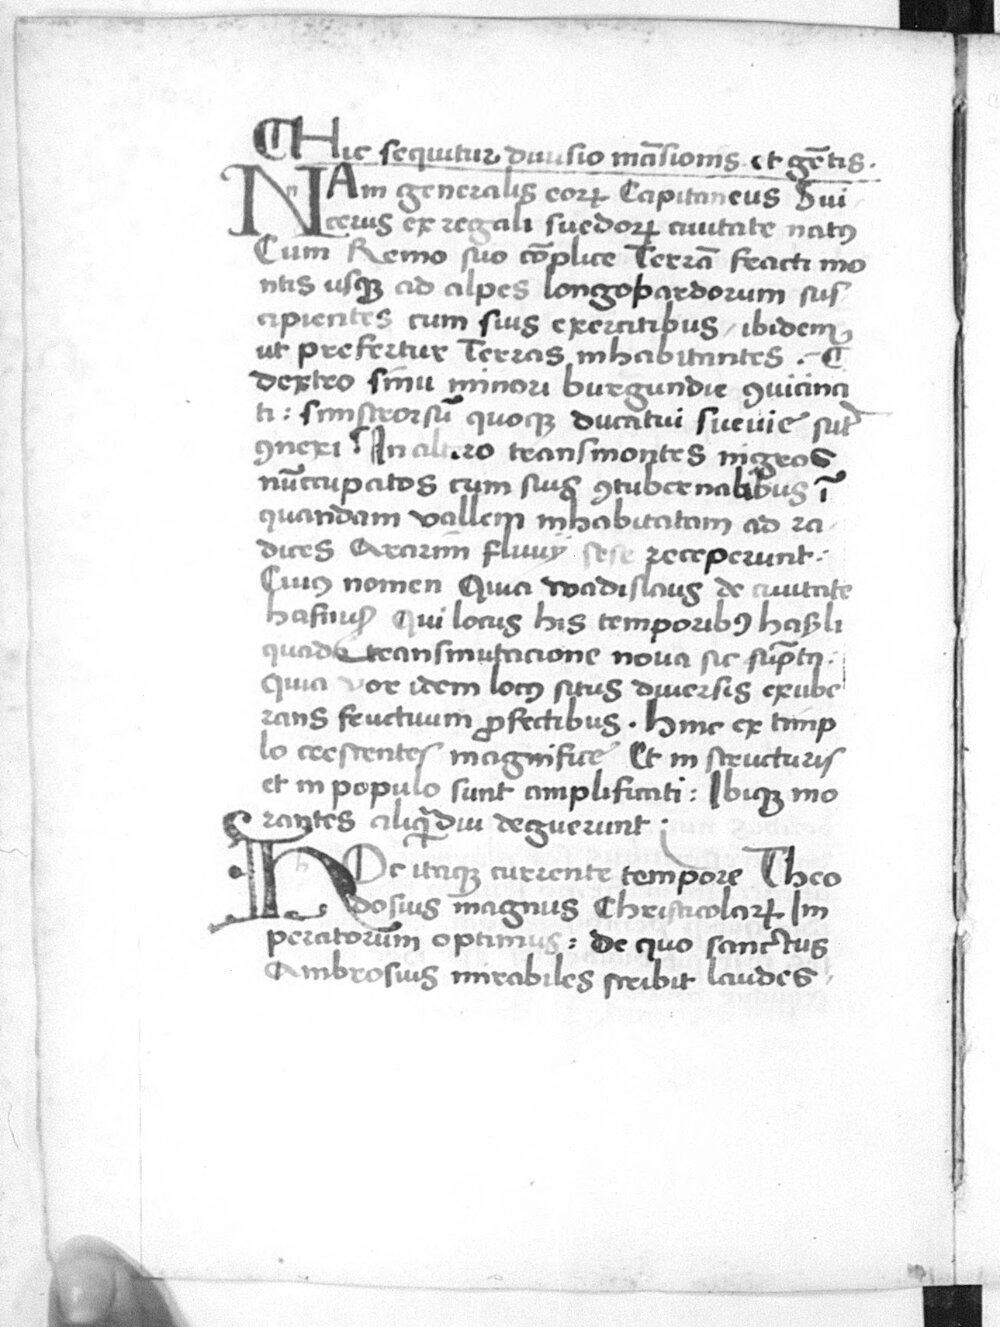 Hic sequitur diuisio māsionis et gētis.
NAm generalis eorꝝ Capitaneus Sui
cerus ex regali suedorꝝ ciuitate natꝰ
Cum Remo suo cōplice Terrā fracti mo
ntis usqꝫ ad alpes longobardorum sus
cipientes cum suis exercitibus / ibidem
ut prefertur Terras inhabitantes . Ꞇ
dextro sinu minori burgundie ꝯuicina
ti : sinistrorsū quoqꝫ ducatui sueuie sūt
ꝯnexi In altero transmontes nigros
nūccupatos cum suis ꝯtubernalibus ī
quandam vallem inhabitatam ad ra
dices Ararim fluuij sese receperunt .
Cuiꝰ nomen Quia wadislaus de ciuitate
hasnius Qui locus his temporibꝰ haßli
quadā transmutacione noua sic sūptꝰ .
Quia idem locꝰ situs diuersis exube
rans fructuum ꝓfectibus . hinc ex timp
lo crescentes magnifice Et in structuris
et in populo sunt amplificati : Ibiqꝫ mo
rantes aliqͣdiu deguerunt :
HOc itaqꝫ currente tempore Theo
dosius magnus Christicolarꝝ Im
peratorum optimus : de quo sanctus
Ambrosius mirabiles scribit laudes